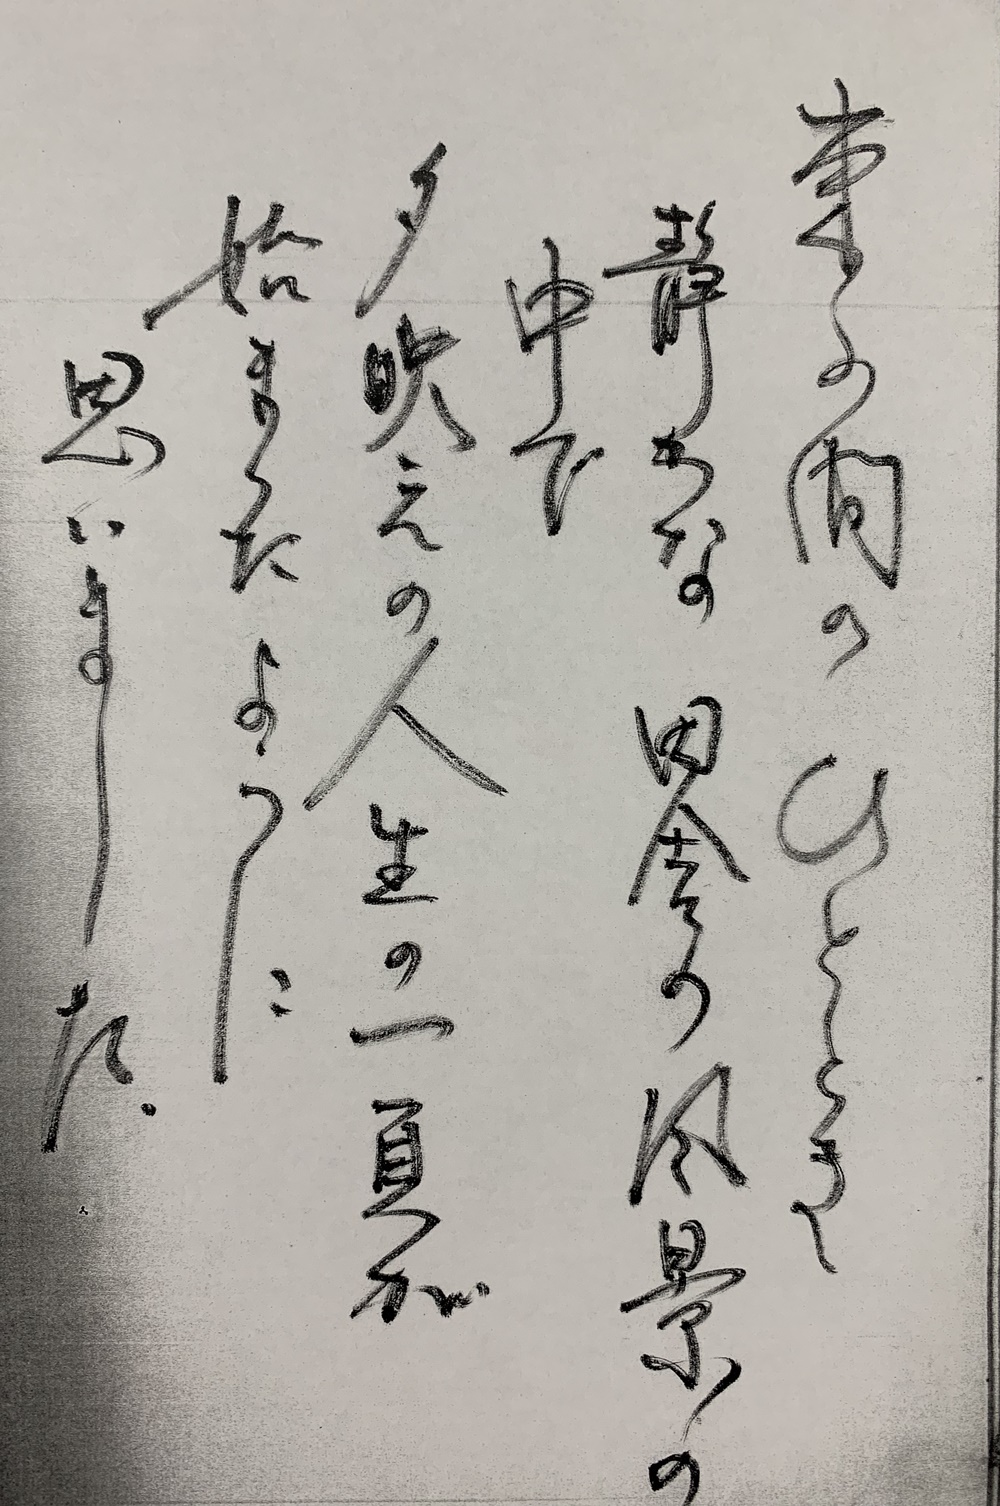 束の間の ひととき
静かな 田舎の風景の
中で
夕映えの人生の一頁が
始まったように
思いました。